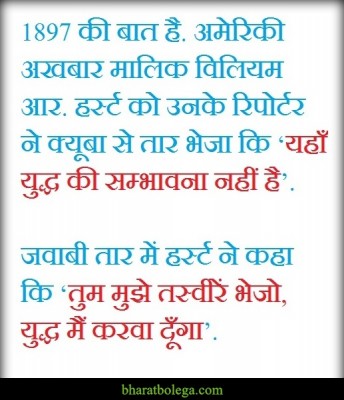 1897 की बात है. अमेरिकी
अखबार मालिक विलियम
आर. हर्स्ट को उनके रिपोर्टर
ने क्यूबा से तार भेजा कि ‘यहाँ
युद्ध की सम्भावना नहीं है’.
जवाबी तार में हर्स्ट ने कहा
कि ‘तुम मुझे तस्वीरें भेजो,
युद्ध मैं करवा दूँगा’.
bharatbolega.com